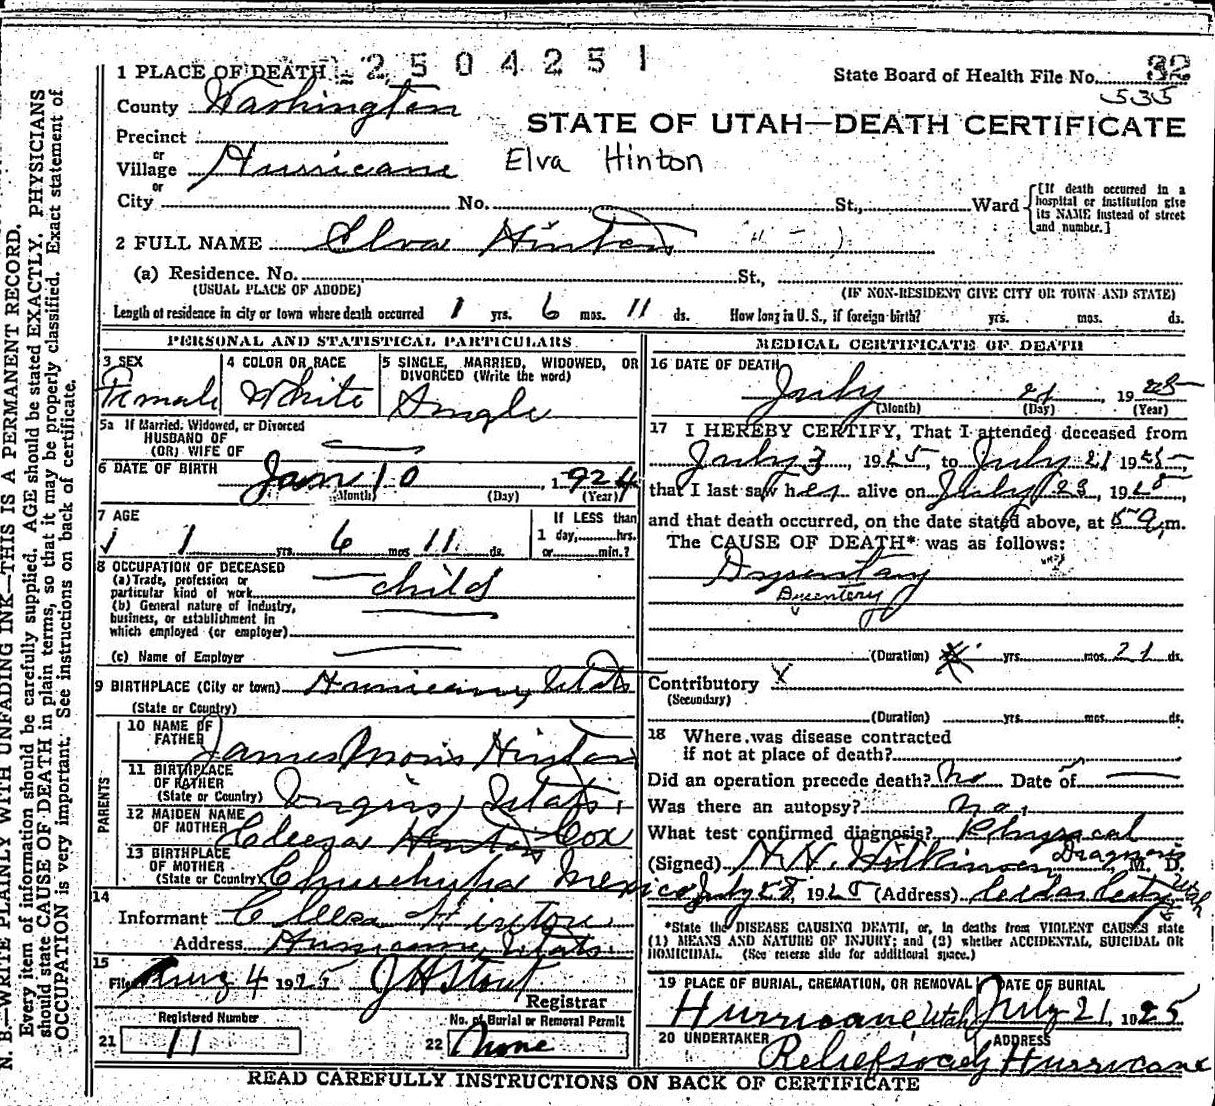 2504251
1 PLACE OF DEATH
State Board of Health File No. 32
535
County Washington
STATE OF UTAH—DEATH CERTIFICATE
Precinct
or
Village Hurricane
Elva Hinton
or
City No. St., Ward
[If death occurred in a hospital or institution give its NAME instead of street and number.]
2 FULL NAME Elva Hinton
(a) Residence. No. St.,
(USUAL PLACE OF ABODE) (IF NON-RESIDENT GIVE CITY OR TOWN AND STATE)
Length of residence in city or town where death occurred 1 yrs. 6 mos. 11 ds. How long in U.S., if foreign birth? yrs. mos. ds.
PERSONAL AND STATISTICAL PARTICULARS
3 SEX
Female
4 COLOR OR RACE
White
5 SINGLE, MARRIED, WIDOWED, OR
DIVORCED (Write the word)
Single
5a If Married, Widowed, or Divorced
HUSBAND OF
(OR) WIFE OF
6 DATE OF BIRTH
Jan 10 1924
(Month) (Day) (Year)
7 AGE
1 yrs. 6 mos 11 ds.
If LESS than
1 day, hrs.
or min.?
8 OCCUPATION OF DECEASED
(a) Trade, profession or
particular kind of work child
(b) General nature of industry,
business, or establishment in
which employed (or employer)
(c) Name of Employer
9 BIRTHPLACE (City or town) Hurricane, Utah
(State or Country)
PARENTS
10 NAME OF
FATHER James Moris Hinton
11 BIRTHPLACE
OF FATHER
(State or Country) Virgin, Utah.
12 MAIDEN NAME
OF MOTHER Cleesa Hinton Cox
13 BIRTHPLACE
OF MOTHER
(State or Country) Mexico
14
Informant Hinton
Address Hurricane, Utah.
15
Filed Aug 4 1925 J H Stout
Registrar
Registered Number
21 11
No. of Burial or Removal Permit
22 None
MEDICAL CERTIFICATE OF DEATH
16 DATE OF DEATH
July 21, 1925
(Month) (Day) (Year)
17 I HEREBY CERTIFY, That I attended deceased from
July 3, 1925, to July 21 1925,
that I last saw her alive on July 1925,
and that death occurred, on the date stated above, at 5 a.m.
The CAUSE OF DEATH* was as follows:
Dysentary
Dysentery
(Duration) yrs. mos. 21 ds.
Contributory X
(Secondary)
(Duration) yrs. mos. ds.
18 Where was disease contracted
if not at place of death?
Did an operation precede death? No Date of
Was there an autopsy? No.
What test confirmed diagnosis? Physical
Diagnosis
(Signed) Wilkinson, M. D.
July 1925 (Address) Cedar City, Utah
*State the DISEASE CAUSING DEATH, or, in deaths from VIOLENT CAUSES state
(1) MEANS AND NATURE OF INJURY; and (2) whether ACCIDENTAL, SUICIDAL OR
HOMICIDAL. (See reverse side for additional space.)
19 PLACE OF BURIAL, CREMATION, OR REMOVAL
Hurricane Utah
DATE OF BURIAL
July 21, 1925
20 UNDERTAKER
Relief Society
ADDRESS
Hurricane
READ CAREFULLY INSTRUCTIONS ON BACK OF CERTIFICATE
N. B.—WRITE PLAINLY WITH UNFADING INK—THIS IS A PERMANENT RECORD.
Every item of information should be carefully supplied. AGE should be stated EXACTLY. PHYSICIANS
should state CAUSE OF DEATH in plain terms, so that it may be properly classified. Exact statement of
OCCUPATION is very important. See instructions on back of certificate.